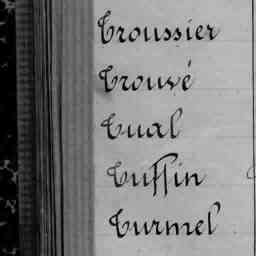 Troussier
Trouvé
Tual
Tuffin
Turmel